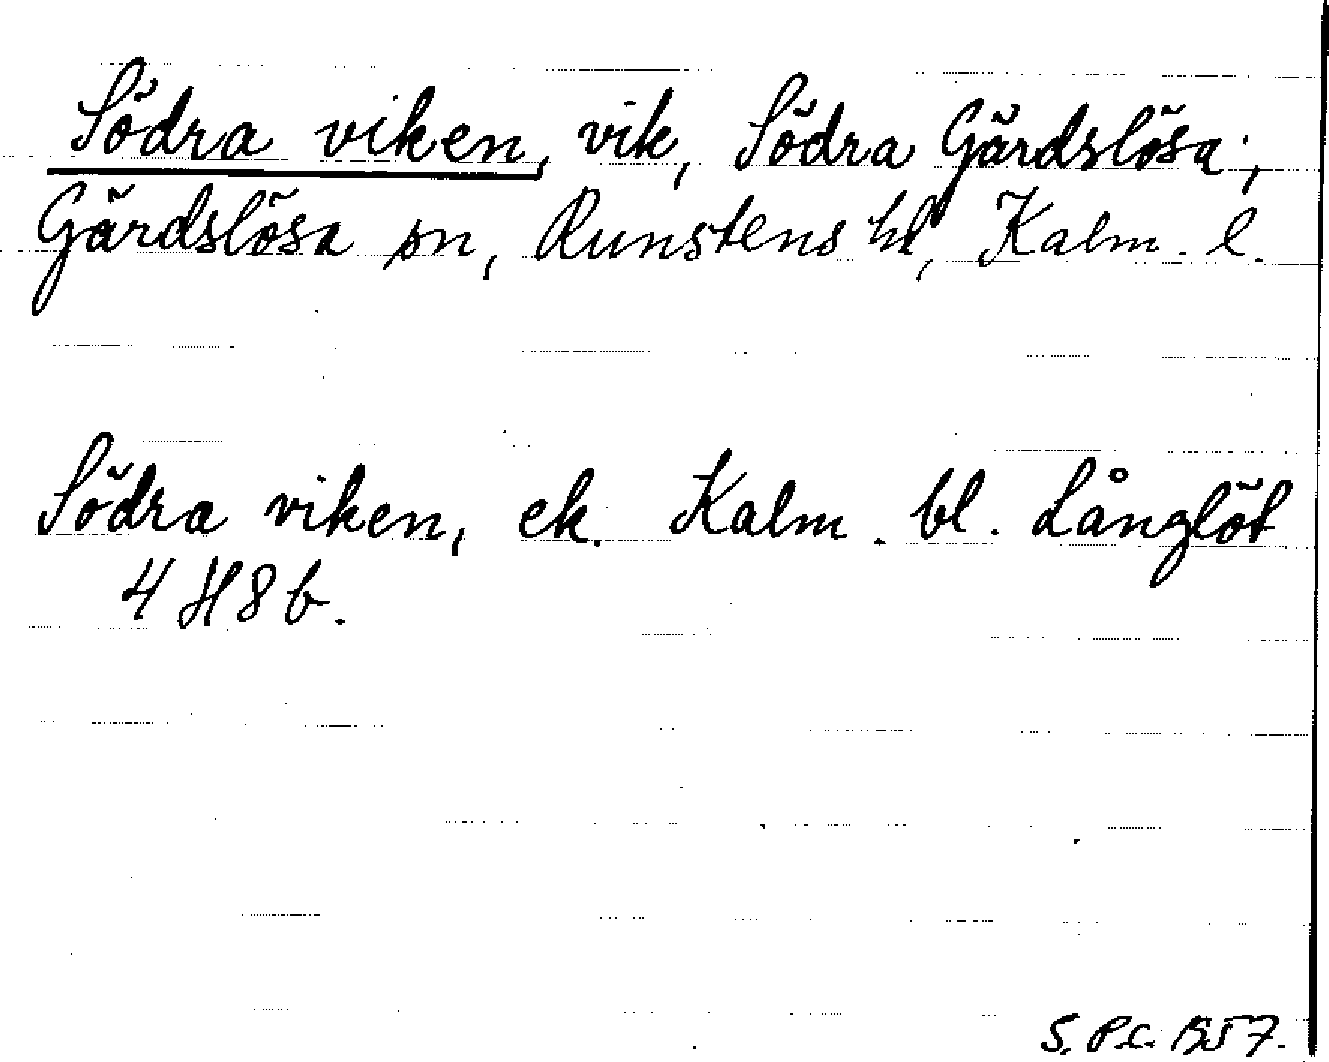 Södra viken, vik, Södra Gärdslösa,
Gärdslösa sn, Runstens hd, Kalm. l.
Södra viken, ek. Kalm. bl. Långlöt
4 H 8 b.
S. P.c. 1957.